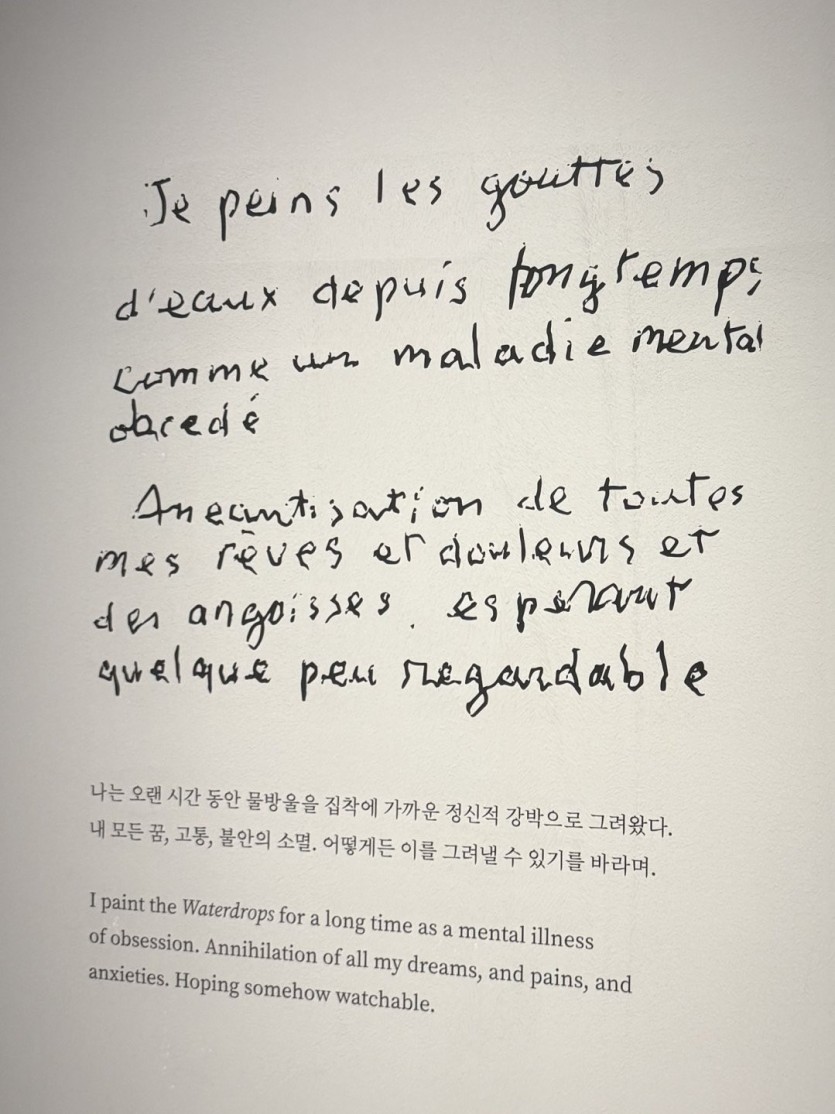 Je peins les gouttes
d'eaux depuis longtemps
comme un maladie mental
obcedé
Aneantisation de toutes
mes rêves et douleurs et
des angoisses. esperant
quelque peu regardable
나는 오랜 시간 동안 물방울을 집착에 가까운 정신적 강박으로 그려왔다.
내 모든 꿈, 고통, 불안의 소멸. 어떻게든 이를 그려낼 수 있기를 바라며.
I paint the Waterdrops for a long time as a mental illness
of obsession. Annihilation of all my dreams, and pains, and
anxieties. Hoping somehow watchable.